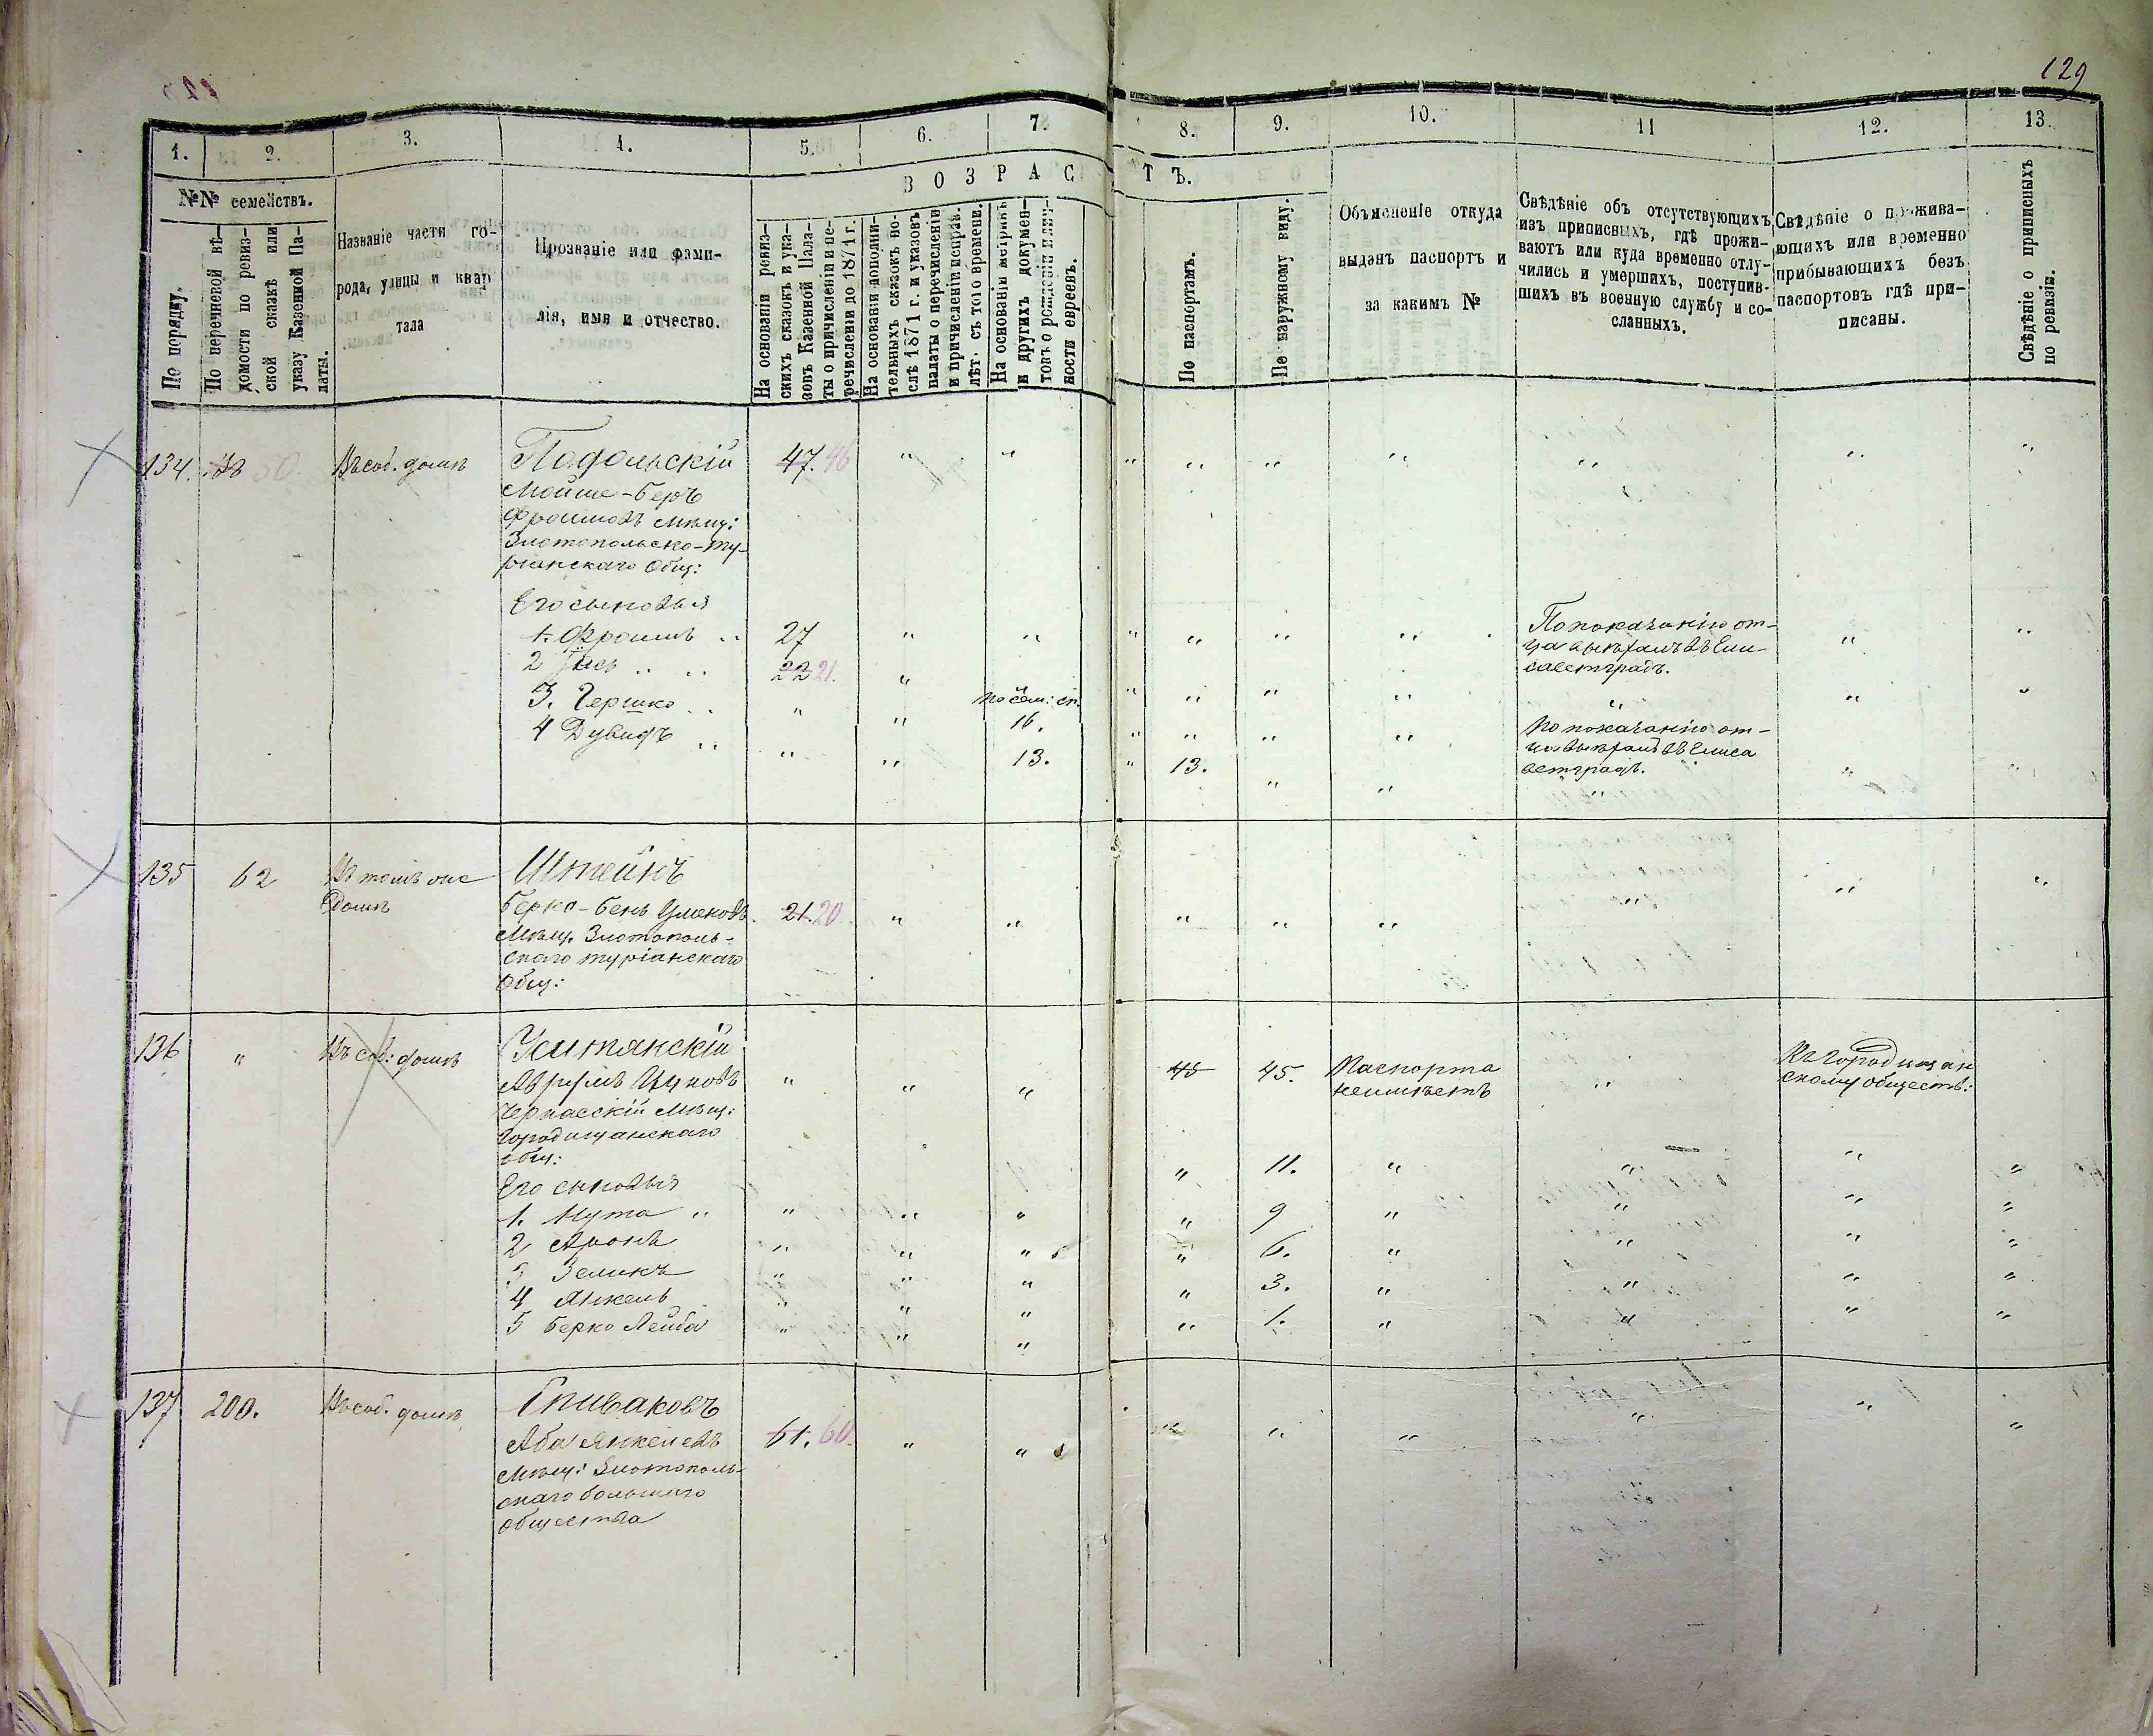 129
1.
2.
3.
4.
5.
6.
7.
8.
9.
10.
11
12.
13.
ВОЗРАСТЪ.
№№ семействъ.
По порядку.
По перечневой вѣ-
домости по ревиз-
ской сказкѣ или
указу Казенной Па-
латы.
Названіе части го-
рода, улицы и квар
тала
Прозваніе или фами-
лія, имя и отчество.
На основаніи ревиз-
скихъ сказокъ и ука-
зовъ Казенной Пала-
ты о причисленіи и пе-
речисленіи до 1871 г.
На основаніи дополни-
тельныхъ сказокъ по-
слѣ 1871 г. и указовъ
палаты о перечисленіи
и причисленіи исправ.
лѣт. съ того времени.
На основаніи метрикъ
и другихъ докумен-
товъ о рожденіи
ности евреевъ.
По паспортамъ.
По наружному виду.
Объясненіе откуда
выданъ паспортъ и
за какимъ №
Свѣдѣніе объ отсутствующихъ
изъ приписныхъ, гдѣ прожи-
ваютъ или куда временно отлу-
чились и умершихъ, поступив-
шихъ въ военную службу и со-
сланныхъ.
Свѣдѣніе о прожива-
ющихъ или временно
прибывающихъ безъ
паспортовъ гдѣ при-
писаны.
Свѣдѣніе о приписныхъ
по ревизіи.
134. 50 Въ соб. домѣ Подольскій 47. 46 " " " " " " " " "
Мойше-Беръ
Фроимовъ мѣщ:
Златопольско-ту-
ріанскаго Общ:
Его сыновья
1. Фроимъ " 27 " " " " " " По показанію от- " "
ца выѣхалъ въ Ели-
саветградъ.
2 " " 22 21. " " " " " " " " "
3. Гершко " " " по сем: сп. 16. " " " " По показанію от-
ца выѣхалъ въ Елиса
ветградъ.
4 Дувидъ " " " 13. " 13. " " " " "
135 62 Въ томъ же Штейнъ
домѣ Берко-Бень 21. 20. " " " " " " " "
Мѣщ. Златополь-
скаго туріанскаго
Общ:
136 " Въ соб: домѣ Уситянскій
Аврумъ " " " 45 45. Паспорта " Къ Городищан
неимѣетъ скому обществ:
Черкасскій мѣщ:
Городищанскаго
общ:
Его сыновья
1. Нута " " " " " 11. " " " "
2 Аронъ " " " " 9 " " " "
3 Зеликъ " " " " 6. " " " "
4 Янкель " " " " 3. " " " "
5 Берко Лейба " " " " 1. " " " "
137 200. Въ соб. домѣ Спиваковъ
Аба Янкелевъ 61. 60. " " " " " " "
Мѣщ: Златополь-
скаго большаго
общества